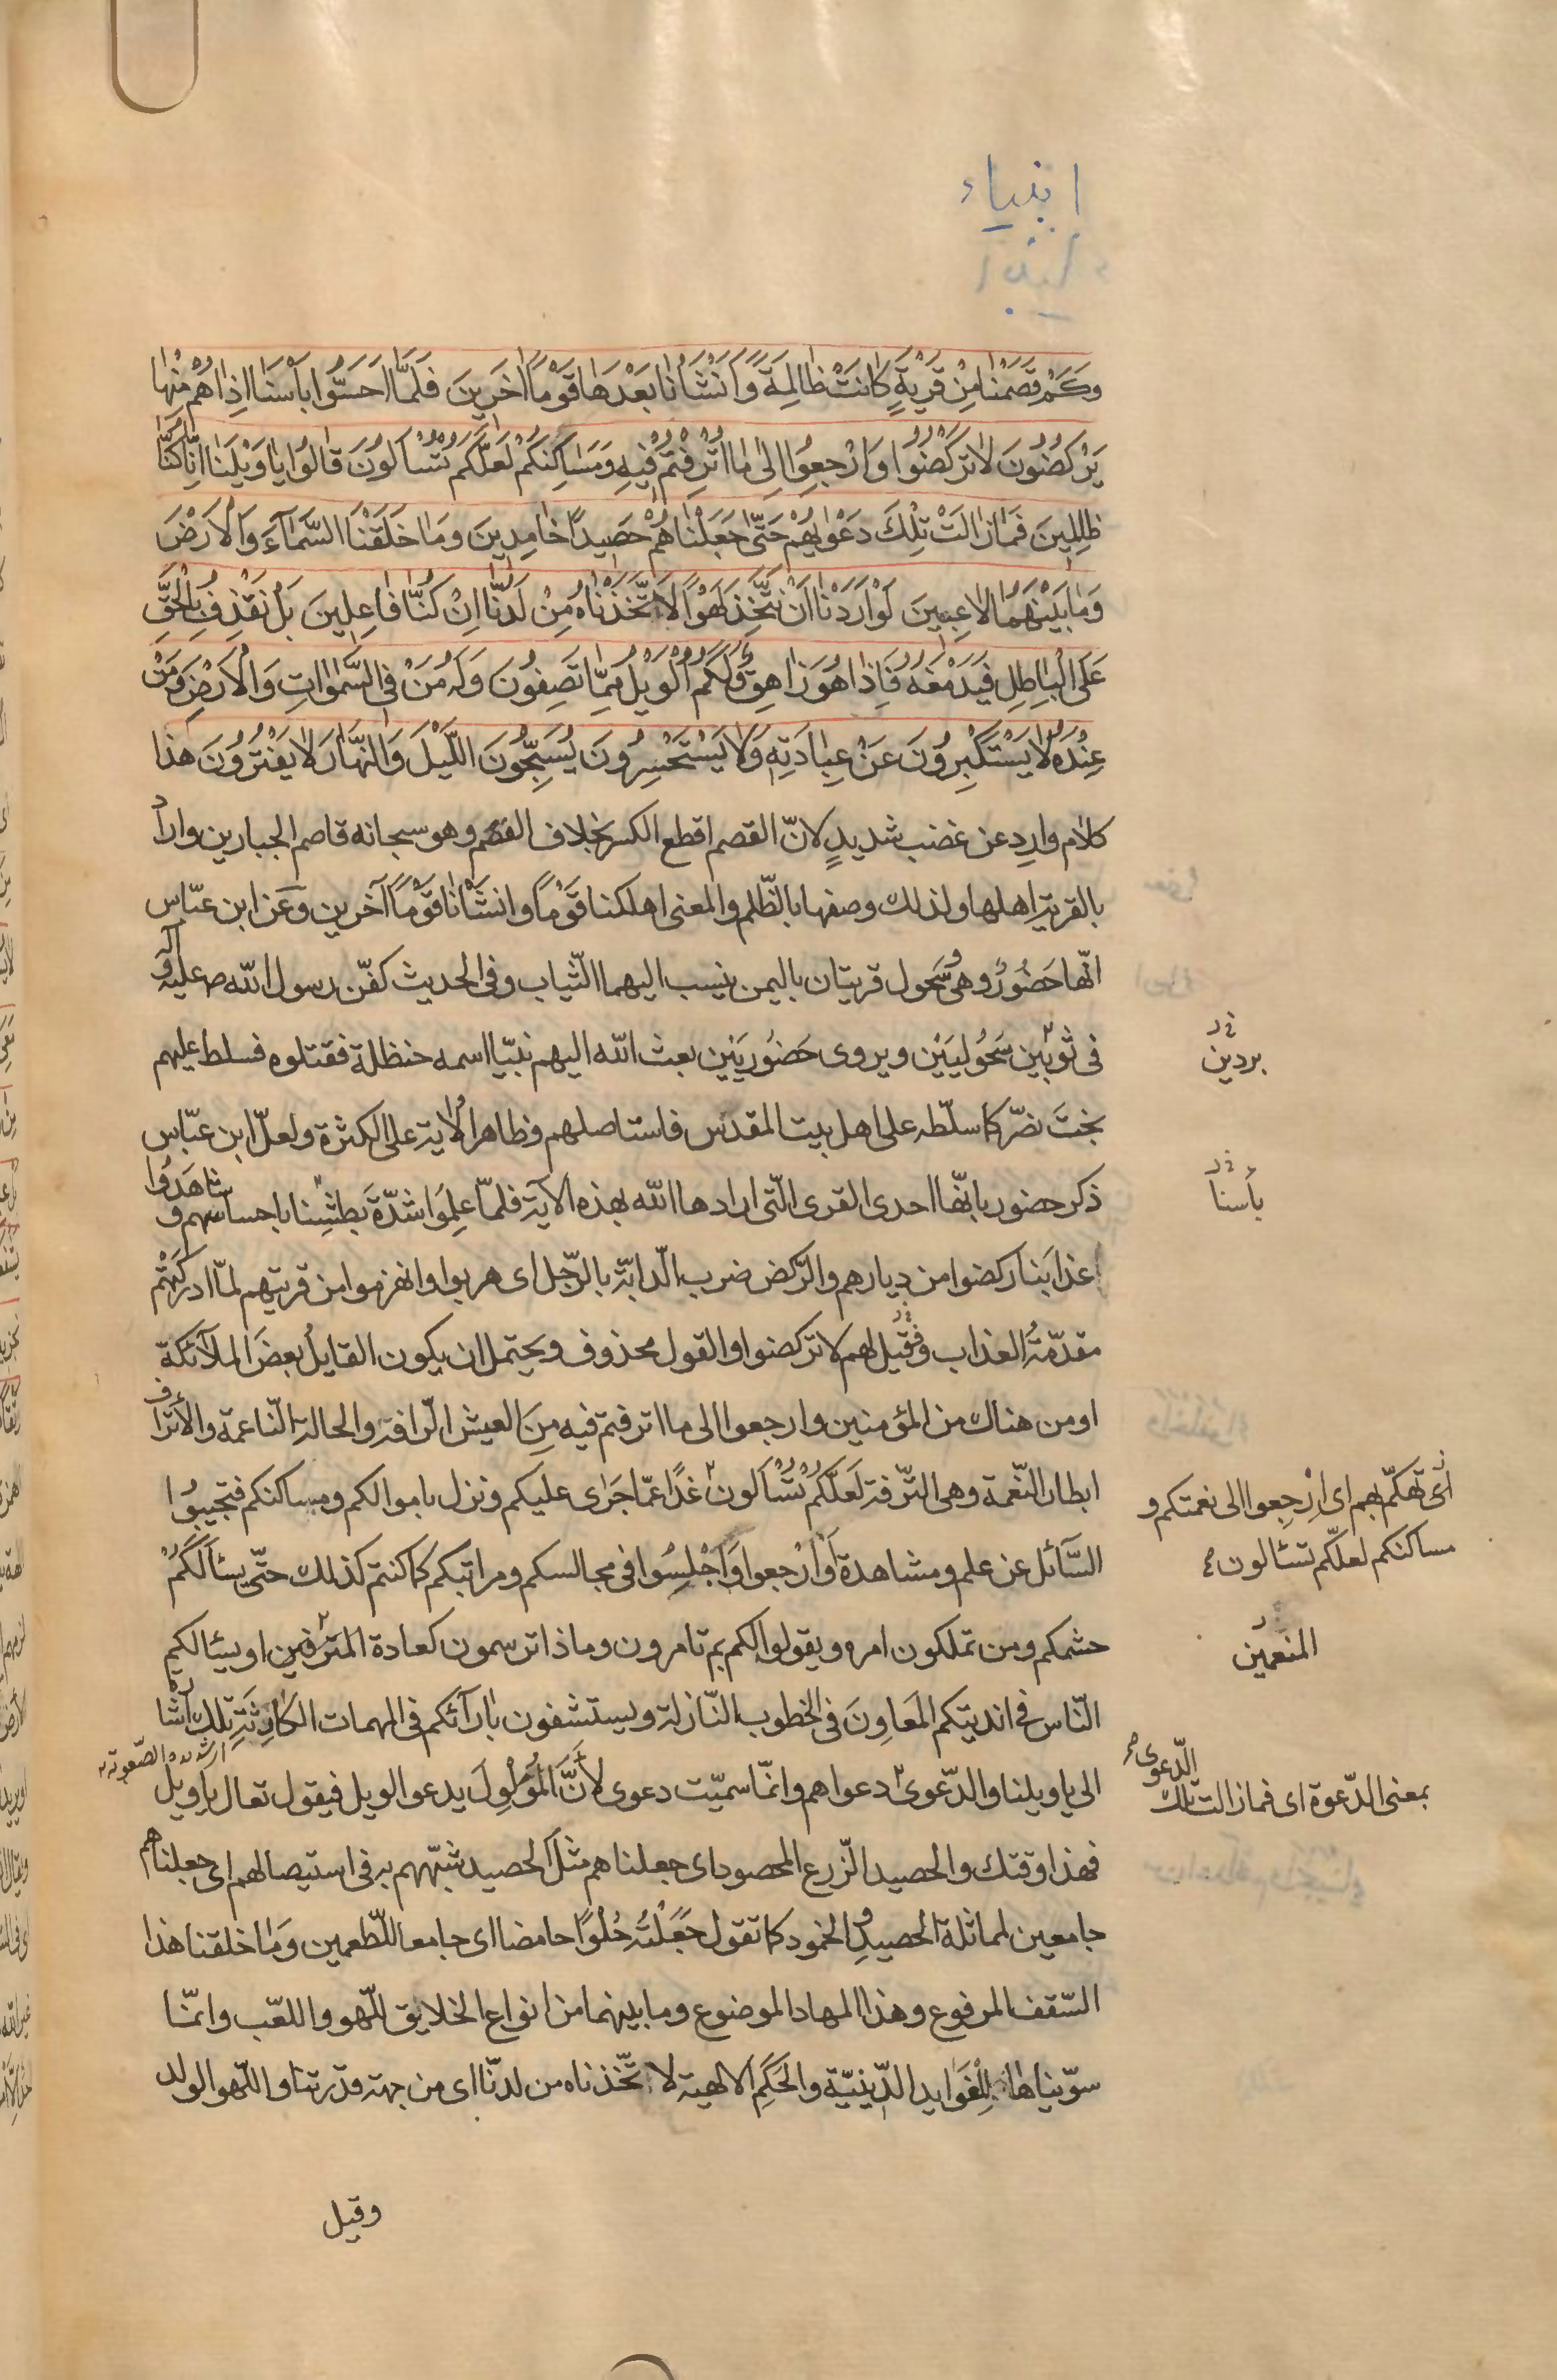 انبیاء
وَكَمْ قَصَمْنٰا مِنْ قَرْيَةٍ كٰانَتْ ظٰالِمَةً وَاَنْشَأْنٰا بَعْدَهٰا قَوْمًا اٰخَرِينَ فَلَمّٰا اَحَسُّوا بَأْسَنٰا اِذٰا هُمْ مِنْهٰا
يَرْكُضُونَ لاٰ تَرْكُضُوا وَارْجِعُوا اِلىٰ مٰا اُتْرِفْتُمْ فِيهِ وَمَسٰاكِنِكُمْ لَعَلَّكُمْ تُسْأَلُونَ قٰالُوا يٰا وَيْلَنٰا اِنّٰا كُنّٰا
ظٰالِمِينَ فَمٰا زٰالَتْ تِلْكَ دَعْوٰيهُمْ حَتّٰى جَعَلْنٰاهُمْ حَصِيدًا خٰامِدِينَ وَمٰا خَلَقْنَا السَّمٰآءَ وَالْاَرْضَ
وَمٰا بَيْنَهُمٰا لاٰعِبِينَ لَوْ اَرَدْنٰا اَنْ نَتَّخِذَ لَهْوًا لاَتَّخَذْنٰاهُ مِنْ لَدُنّٰا اِنْ كُنّٰا فٰاعِلِينَ بَلْ نَقْذِفُ بِالْحَقِّ
عَلَى الْبٰاطِلِ فَيَدْمَغُهُ فَاِذٰا هُوَ زٰاهِقٌ وَلَكُمُ الْوَيْلُ مِمّٰا تَصِفُونَ وَلَهُ مَنْ فِي السَّمٰوٰاتِ وَالْاَرْضِ وَمَنْ
عِنْدَهُ لاٰ يَسْتَكْبِرُونَ عَنْ عِبٰادَتِهِ وَلاٰ يَسْتَحْسِرُونَ يُسَبِّحُونَ اللَّيْلَ وَالنَّهٰارَ لاٰ يَفْتُرُونَ هذا
كلام وارد عن غضب شديدٍ لانّ القصم اقطع الكسر بخلاف الفصم وهو سبحانه قاصم الجبارين واراد
بالقرية اهلها ولذلك وصفها بالظّلم والمعنى اهلكنا قَوْمًا وانشَأْنٰا قَوْمًا آخرين وعَن ابن عبّاس
انّها حَضُورٌ وهى وسُحول قريتان باليمن ينسب اليهما الثّياب وفى الحديث كفّن رسول الله ص عليه وآله
فى ثوبَين سَحُوليَيْن ويروى حَضُوريَيْن بعث الله اليهم نبيّا اسمه حنظلة فقتلوه فسلط عليهم
بردين
بخت نصّر كما سلّطه على اهل بيت المقدس فاستاصلهم وظاهر الآية على الكثرة ولعلّ ابن عبّاس
ذكر حضور بانّها احدى القرى الّتى ارادها الله بهذه الآية فلمّا علِمُوا شدّة بَطشِنا باحساسهم وشاهَدُوا
بأسنا
عذابَنا ركضوا من ديارهم والرّكض ضرب الدّابّة بالرّجل اى هربوا وانهزموا من قريتهم لمّا ادركتهم
مقدّمةُ العذاب فقيل لهم لا تركضوا والقول محذوف ويحتمل ان يكون القايلُ بعضَ الملآئكة
او من هناك من المؤمنين وارجعوا الى ما اترفتم فيه مِنَ العيش الرّافه والحالة النّاعمة والأتراف
ابطار النّعمة وهى التّرفة لَعَلَّكُمْ تُسْأَلُونَ غدًا عمّا جَرٰى عليكم ونزل باموالكم ومساكنكم فتجيبُوا
اى تهكّم بهم اى اِرْجِعوا الى نعمتكم و
مساكنكم لعلّكم تسئالون
السَّآئل عن علم ومشاهدة اَوْ ارجعوا وَاجْلِسُوا فى مجالسكم ومراتبكم كما كنتم كذلك حتّى يسئالَكُمْ
حشمكم ومن تملكون امره ويقولوا لكم بم تامرون وماذا ترسمون كعادة المترَفين او يسئالكم
المنعمين
النّاس فى انديتكم المَعاوِنَ فى الخطوب النّازلة ويستشفون بآرآئكم فى المهمات الكٰارِثَةِ تلك اشارة
الى يا ويلنا والدّعوى دعواهم وانّما سميّت دعوى لأَنَّ المُوَلوِلَ يدعو الويل فيقول تعال يا ويل
بمعنى الدّعوة اى فما زالت تلك الدّعوى
فهذا وقتك والحصيد الزّرع المحصود اى جعلناهم مثلَ الحصيد شبّههم به فى استيصالهم اى جعلناهم
جامعين لمماثلة الحصيدِ والخمود كما تقول جَعَلْتُهُ حُلْوًا حامضا اى جامعا للّطعمين وَمٰا خلقنا هذا
السّقف المرفوع وهذا المهاد الموضوع وما بينهما من انواع الخلايق للّهو واللعّب وانّما
سوّيناها لِلْفَوٰايد الدّينيّة والحِكَمِ الالهية لاتّخذناه من لدنّا اى من جهة قدرتنا واللّهو الولد
وقيل